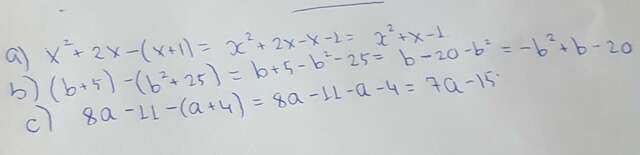 a) x² + 2x - (x+1) = x² + 2x - x - 1 = x² + x - 1
b) (b+5) - (b² + 25) = b + 5 - b² - 25 = b - 20 - b² = -b² + b - 20
c) 8a - 11 - (a+4) = 8a - 11 - a - 4 = 7a - 15